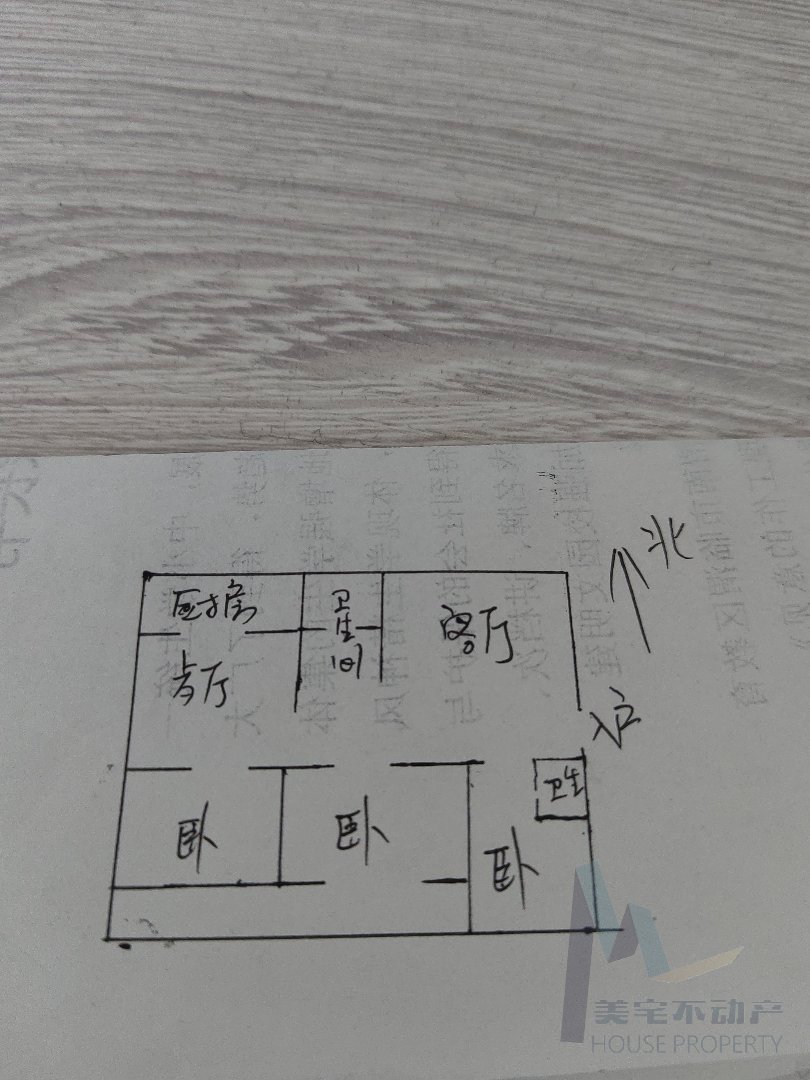 北
厨房
卫生间
客厅
餐厅
入户
卫生
卧
卧
卧
美宅不动产
HOUSE PROPERTY